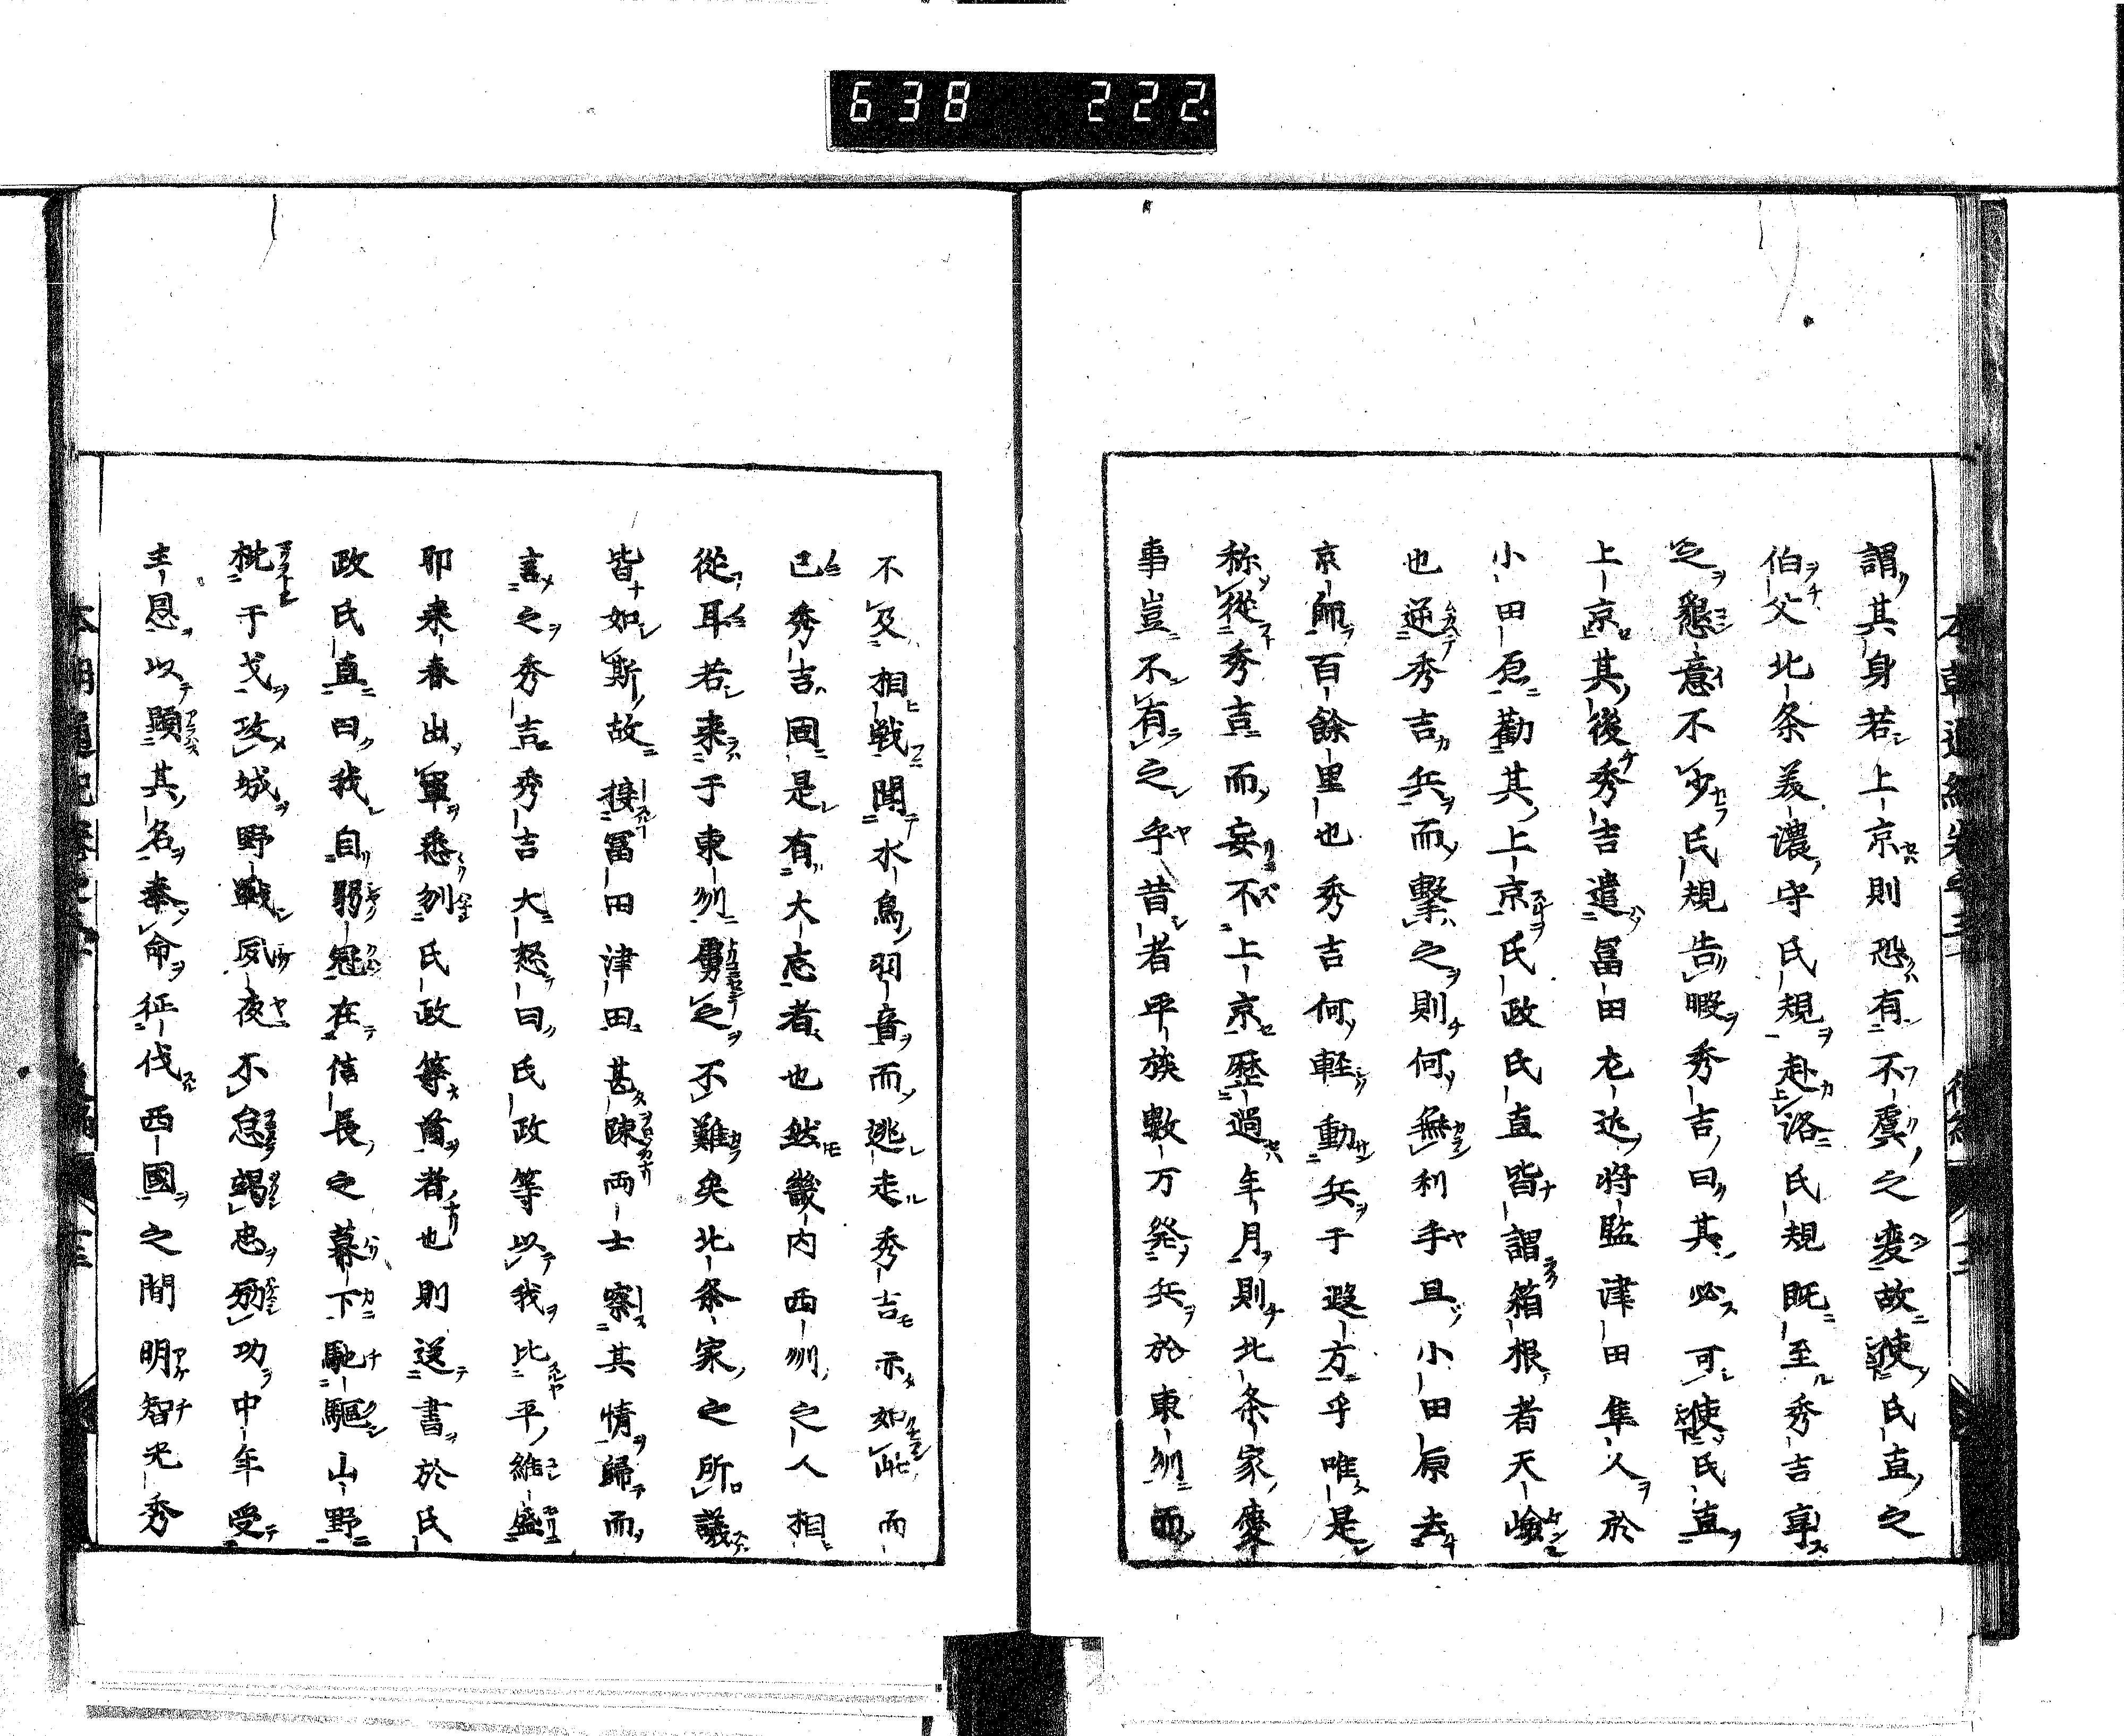 638 222
謂其身若上京則恐有不虞之変故使氏直之
伯父北条美濃守氏規赴洛氏規既至秀吉享
之懇意不少氏規告暇秀吉曰其必可使氏直
上京其後秀吉遣冨田左近将監津田隼人於
小田原勸其上京氏政氏直皆謂箱根者天嶮
也遮秀吉兵而撃之則何無利乎且小田原去
京師百餘里也秀吉何軽動兵于遐方乎唯是
称從秀吉而妄不上京歴過年月則北条家棄
事豈不有之乎昔者平族數万発兵於東州而
不及相戦聞水鳥羽音而逃走秀吉亦如此而
已秀吉固是有大志者也然畿内西州之人相
從耳若来于東州虜之不難矣北条家之所議
皆如斯故接冨田津田甚踈両士察其情歸而
言之秀吉秀吉大怒曰氏政等以我比平維盛
耶来春出軍悉刎氏政等首者也則送書於氏
政氏直曰我自弱冠在信長之幕下馳驅山野
枕于戈攻城野戰夙夜不怠竭忠励功中年受
主恩以顕其名奉命征伐西國之間明智光秀